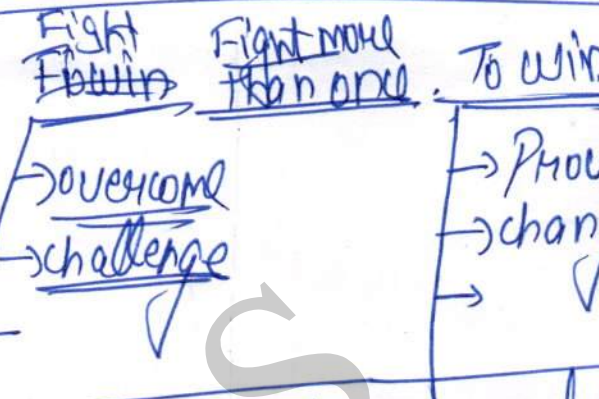 Fight Fight more
than once. To win
→ overcome
→ challenge
→ Prov
→ chan
→